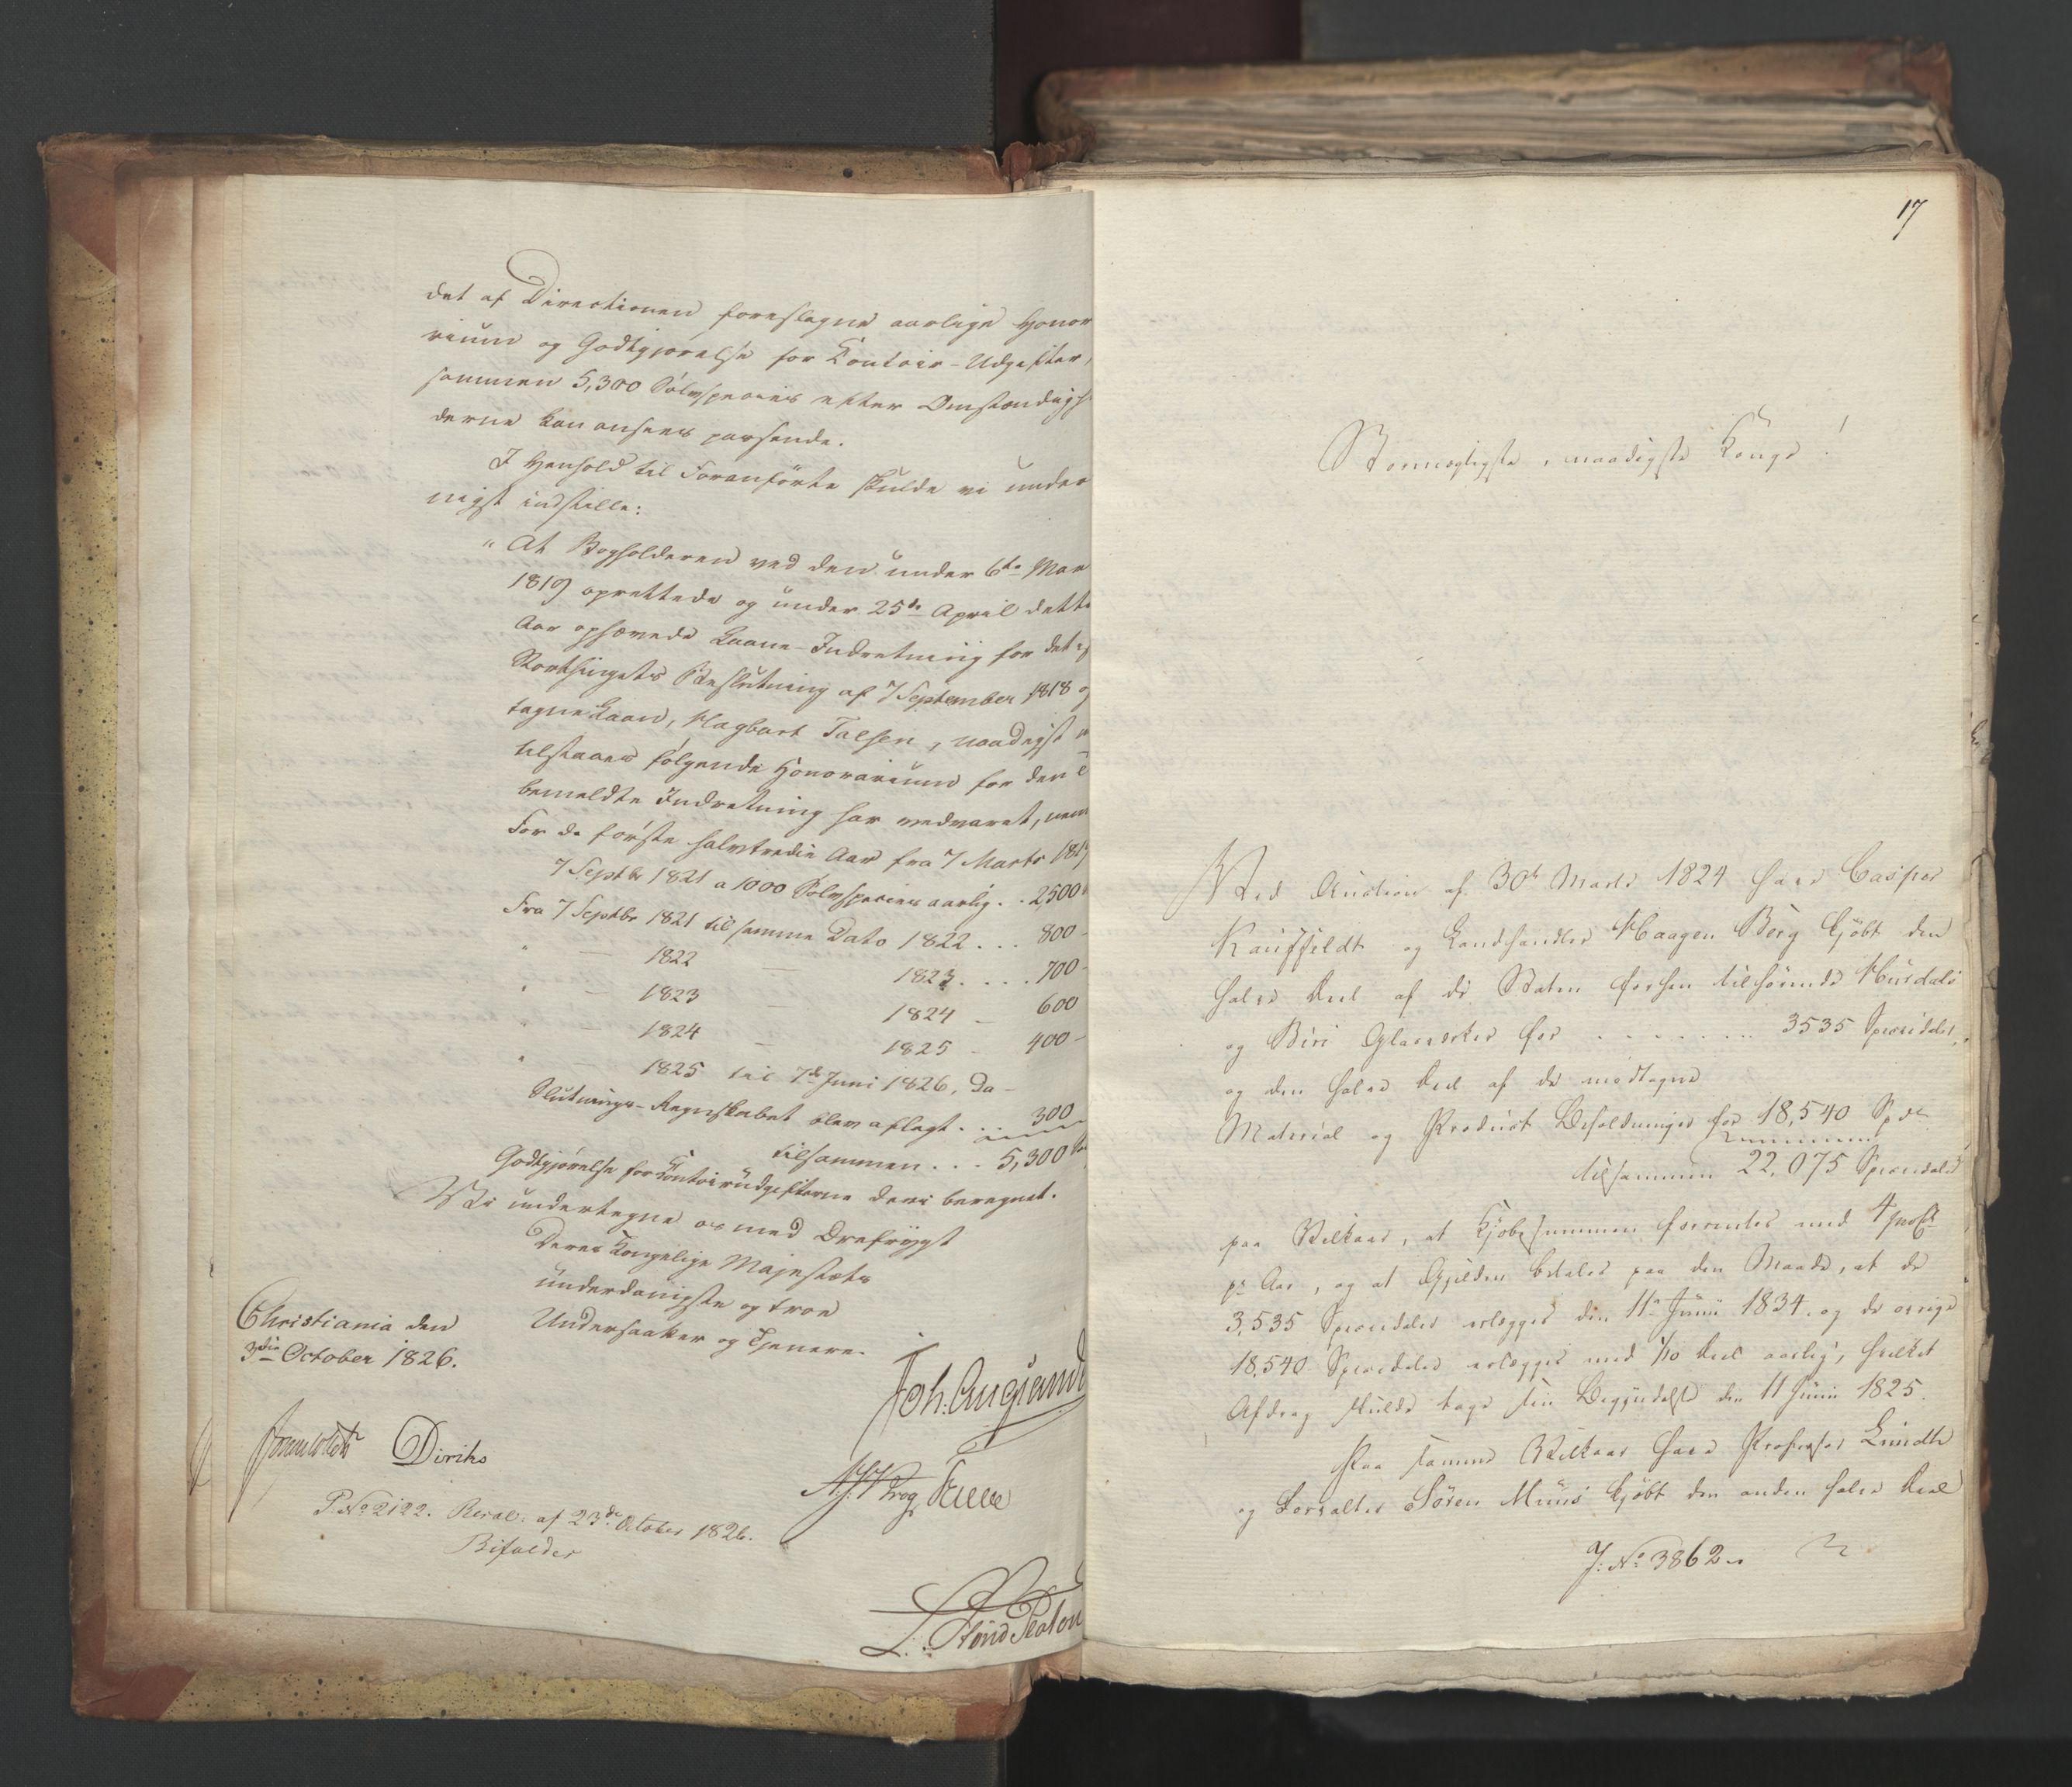 det af Directionen foreslagne aarlige Honor
rium og Godtgjørelse for Contoir-Udgifter,
sammen 5,300 Sølvspecies efter Omstændigh
derne kan ansees passende.
I Henhold til Foranførte skulde vi under
nigst indstille:
"At Bogholderen ved den under 6te Mar
1819 oprettede og under 25de April dette
Aar ophævede Laane-Indretning for det ef
Storthingets Beslutning af 7 September 1818 op
tagne Laan, Hagbart Falsen, naadigst
tilstaaes følgende Honorarium for den
bemeldte Indretning har vedvaret, nem
For de første halvtredie Aar fra 7 Marts 1819
7 Septbr 1821 a 1000 Sølvspecies aarlig . . 2500
Fra 7 Septbr 1821 til samme Dato 1822 . . . 800 -
" — 1822 — 1823 . . . . 700 -
" — 1823 — 1824 — 600
" — 1824 — 1825 - 400 -
" — 1825 til 7de Juni 1826, Da -
Slutnings-Regnskabet blev aflagt . . . 300
tilsammen . . . 5,300
Godtgjørelse for Contoirudgifterne deri beregnet.
Vi undertegne os med Ærefrygt
Deres Kongelige Majestæts
underdanigste og troe
Undersaatter og Tjenere.
Christiania den
3die October 1826.
Joh. Collett
Diriks
P. No 2122. Resol: af 23de October 1826.
Bifaldes
17
Stormægtigste, naadigste Konge!
Ved Auction af 30te Marts 1824 have Casper
Kauffeldt og Landhandler Haagen Berg kjøbt den
halve Deel af de Staten forhen tilhørende Hurdals
og Biri Glasværker for . . . . . . . . 3535 Speciedaler,
og den halve Deel af de modtagne
Material og Product Beholdninger for 18,540 Spdlr
tilsammen 22,075 Speciedaler
paa Vilkaar, at Kjøbesummen forrentes med 4 proCt
pr Aar, og at Gjelden betales paa den Maade, at de
3,535 Speciedaler erlægges den 11te Junii 1834. og de øvrige
18,540 Speciedaler erlægges med 1/10 Deel aarlig, hvilket
Afdrag skulde tage sin Begyndelse den 11 Junii 1825.
Paa samme Vilkaar have Professor Lundh
og Forvalter Søren Muus kjøbt den anden halve Deel
J: No 3862.